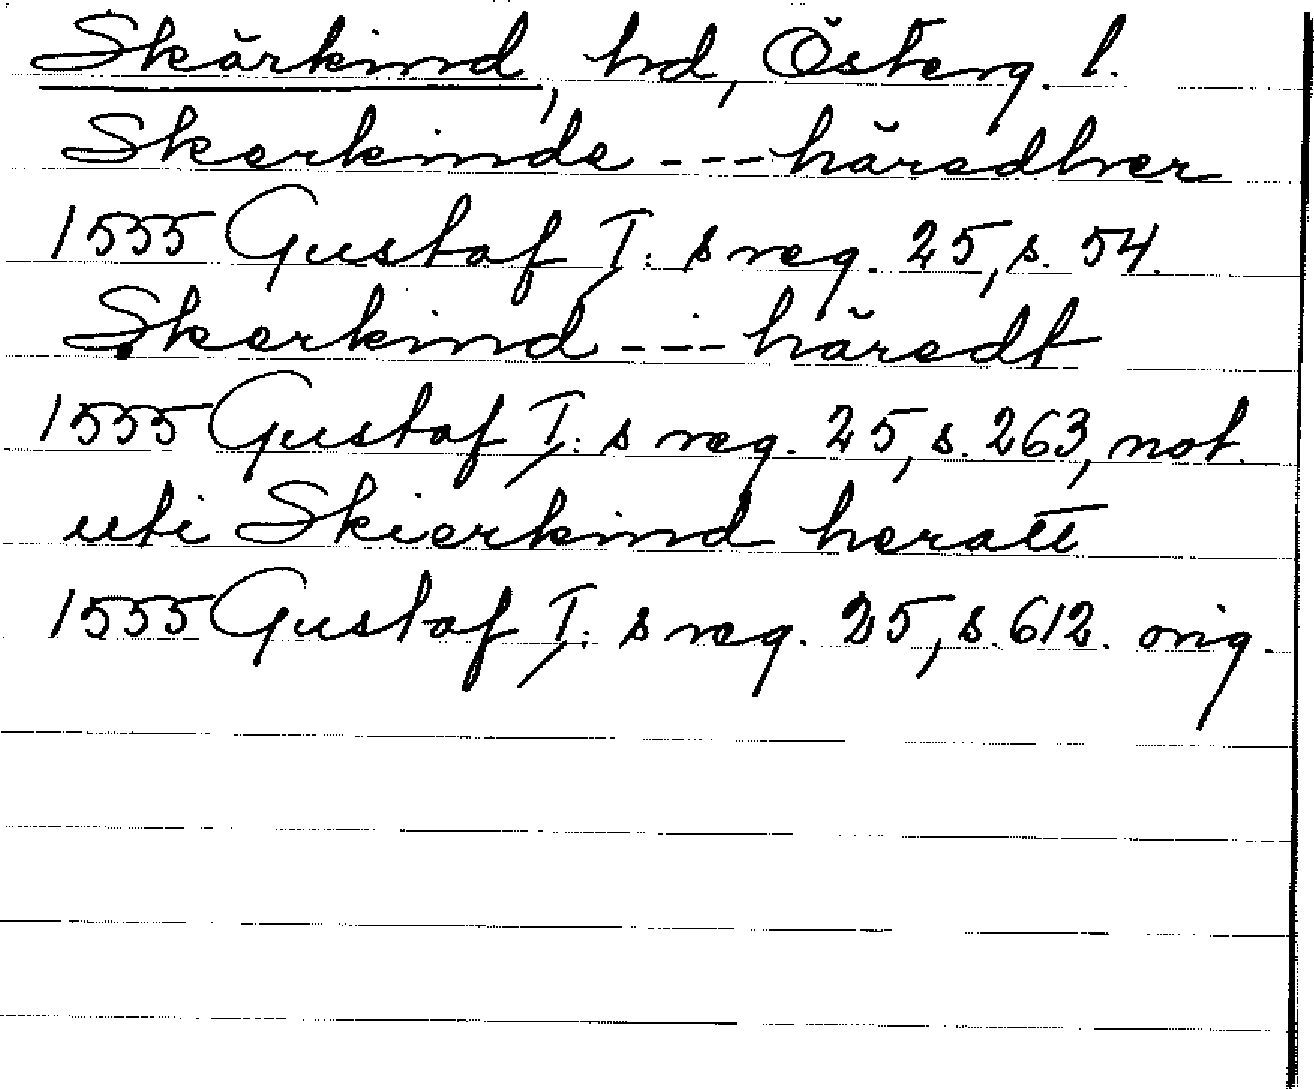 Skärkind, hd, Österg. l.
Skerkinde --- häredhrer
1555 Gustaf I:s reg. 25, s. 54.
Skerkind --- häredt
1555 Gustaf I:s reg. 25, s. 263, not.
uti Skierkind heratt
1555 Gustaf I:s reg. 25, s. 612. orig.